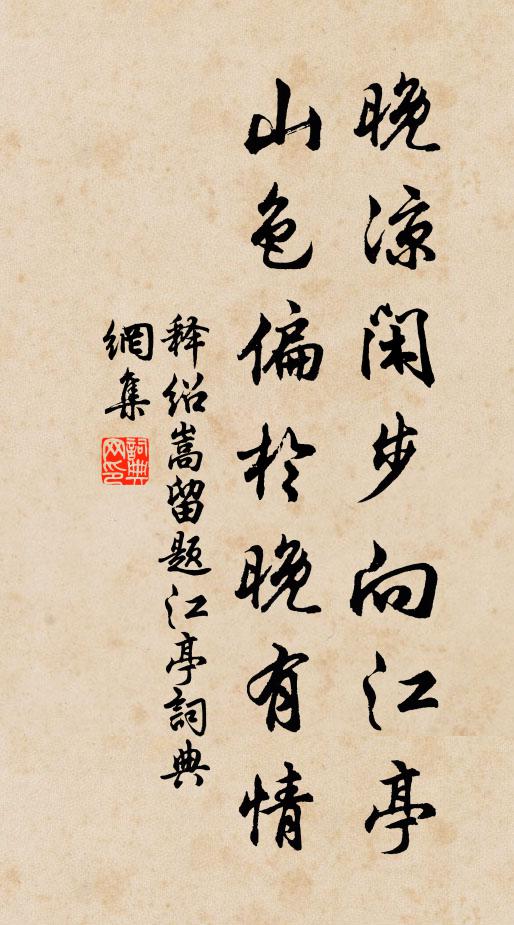 晚凉闲步向江亭
山色偏於晚有情
释绍嵩留题江亭詞典
網集
詞典网印